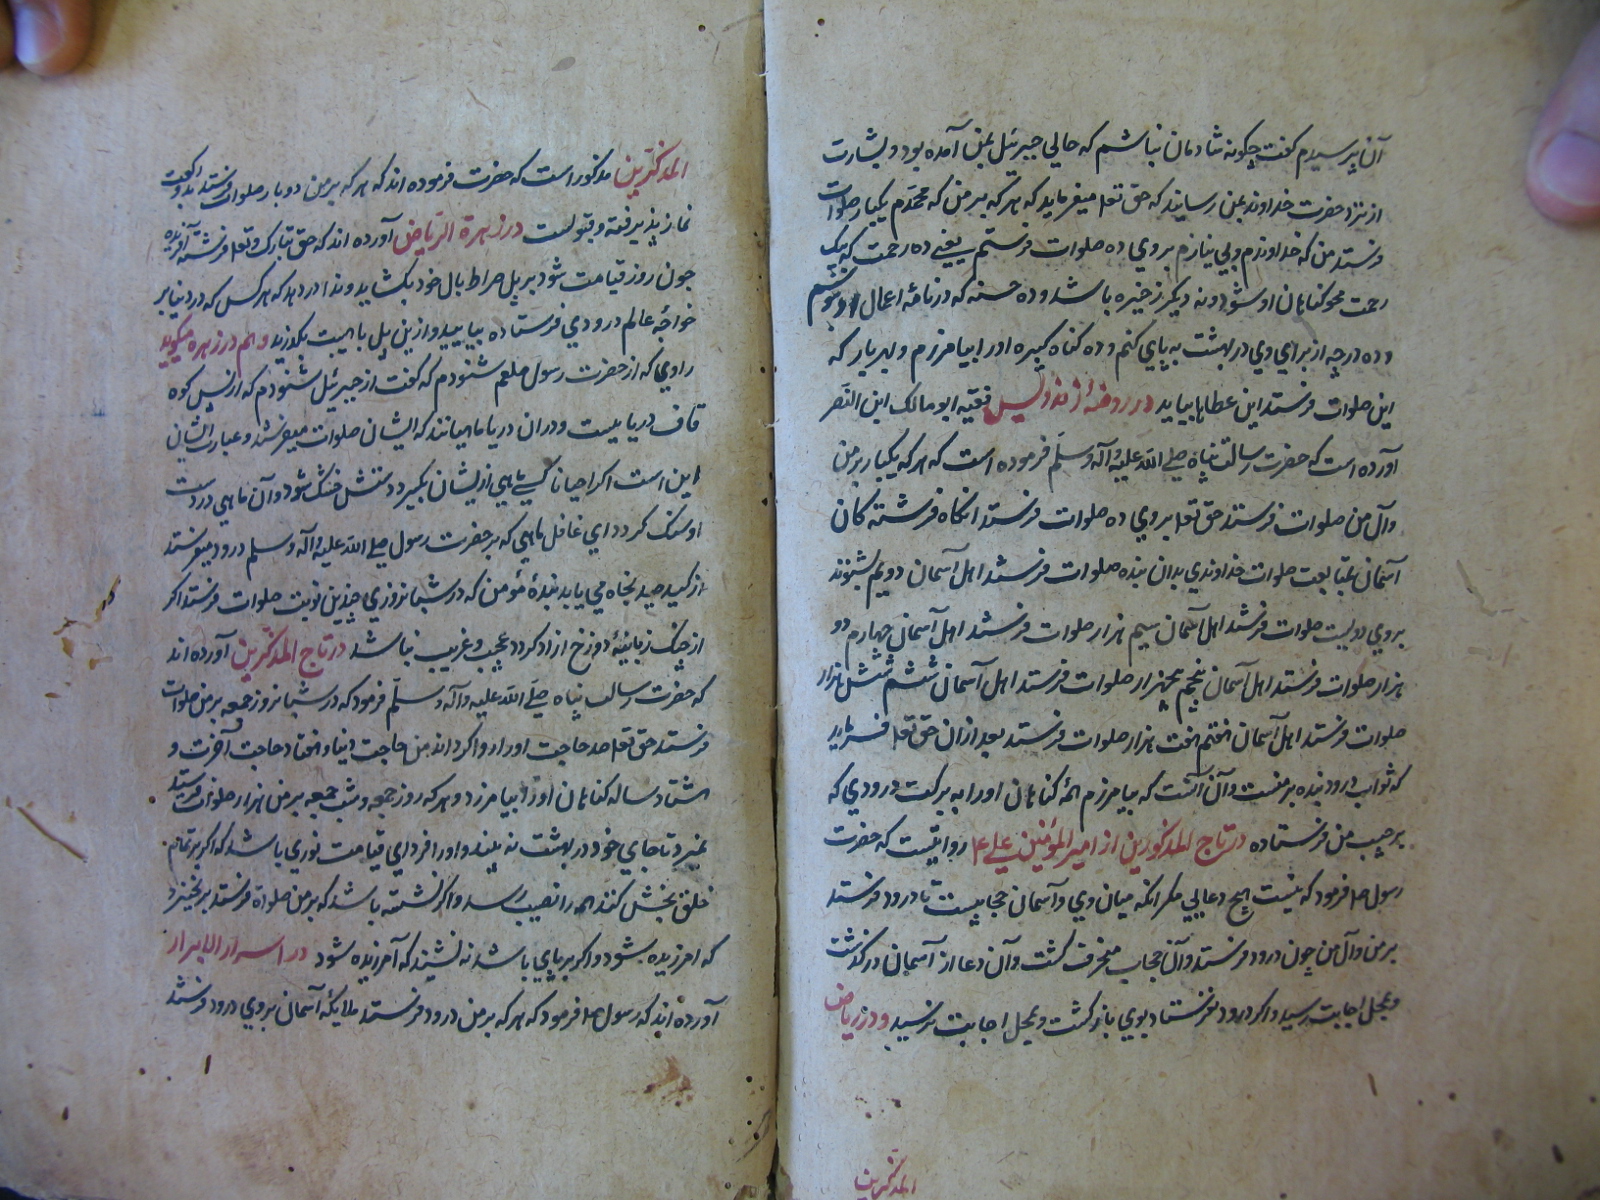 آن پرسیدم کفت چکونه شادمان نباشم که حالی جبرئیل بمن آمده بود و بشارت
از نزد حضرت خداوند بمن رسانید که حق تعلی میفرماید که هر که بر من که محمدم یکبار صلوات
فرستد من که خداوندم و بی نیازم بر وی ده صلوات فرستم یعنی ده رحمت که یک
رحمت محو کناهان او شود و نه دیکر ذخیره باشد و ده حسنه که در نامهٔ اعمال او نویسم
و ده درجه از برای وی در بهشت به پای کنم و ده کناه کبیره او را بیامرزم و هر بار که
این صلوات فرستد این عطاها بیابد در روضهٔ فقیه ابو مالک ابن النصر
آورده است که حضرت رسالت پناه صلی الله علیه و آله وسلم فرموده است که هر که یکبار بر من
و آل من صلوات فرستد حق تعلی بر وی ده صلوات فرستد انکاه فرشته کان
آسمان بمتابعت صلوات خداوندی بدان بنده صلوات فرستد اهل آسمان دویم بشنوند
بر وی دویست صلوات فرستد اهل آسمان سیم هزار صلوات فرستد اهل آسمان چهارم دو
هزار صلوات فرستد اهل آسمان پنجم پنجهزار صلوات فرستد اهل آسمان ششم شش هزار
صلوات فرستد اهل آسمان هفتم هفت هزار صلوات فرستد بعد ازان حق تعلی فرماید
که ثواب درود بنده بر منست و آن آنست که بیامرزم همهٔ کناهان او را به برکت درودی که
بر حبیب من فرستاده در تاج المذکورین از امیر المؤمنین علی ۴ روایتست که حضرت
رسول فرمود که نیست هیچ دعایی مکر انکه میان وی و آسمان حجابیست تا درود فرستد
بر من و آل من چون درود فرستد و آن حجاب منخرق کشت و آن دعا از آسمان در کذشت
و بمحل اجابت رسید و اکر درود نفرستاد بوی باز کشت و بمحل اجابت نرسید و در ریاض
المذکرین
المذکرین مذکور است که حضرت فرموده اند که هر که بر من دو بار صلوات فرستد
نماز پذیرفته و قبولست در زهرة الریاض آورده اند که حق تبارک و تعلی فرشته آفریده
چون روز قیامت شود بر پل صراط بال خود بکشاید و ندا در دهد که هر کس که در دنیا بر
خواجهٔ عالم درودی فرستاده بیایید و از ین پل با هیبت بکذرید و هم در زهره میکوید
راوی که از حضرت رسول صلعم شنودم که کفت از جبرئیل شنودم که از پس کوه
قاف دریاییست و دران دریا ماهیانند که ایشان صلوات میفرستند و عبارت ایشان
این است اکر احیانا کسی ماهی از یشان بکیرد دستش خشک شود و آن ماهی در دست
او سنک کردد ای غافل ماهی که بر حضرت رسول صلی الله علیه و آله وسلم درود میفرستد
از کید صید نجاه می یابد بندهٔ مؤمن که در شبانروزی چندین نوبت صلوات فرستد اکر
از چنک زبانیهٔ دوزخ ازاد کردد عجیب و غریب نباشد در تاج المذکرین آورده اند
که حضرت رسالت پناه صلی الله علیه و آله وسلم فرمود که در شبانروز جمعه بر من صلوات
فرستد حق تعلی صد حاجت او را روا کرداند من حاجت دنیا و هفتاد حاجت آخرت و
هشتاد ساله کناهان او را بیامرزد و هر که روز جمعه و شب جمعه بر من هزار صلوات فرستد
نمیرد تا جای خود در بهشت نه بیند و او را فردای قیامت نوری باشد که اکر بر تمام
خلق بخش کنند همه را نصیب رسد و اکر نشسته باشد که بر من صلواة فرستد بر نخیزد
که امرزیده شود و اکر بر پای باشد نه نشیند که آمرزیده شود در اسرار الابرار
آورده اند که رسول فرمود که هر که بر من درود فرستد ملایکهٔ آسمان بر وی درود فرستد